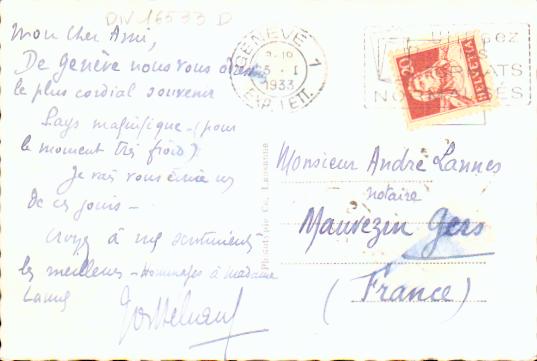 DIV 16533 D
Mon Cher Ami,
De Genève nous vous
le plus cordial souvenir
Pays magnifique - (pour
le moment très froid)
Je vais vous écrire un
De ces jours -
Croyez à nos sentiments
les meilleurs - Hommages à Madame
Lannes
GENÈVE 1
5. I
1933
EXP. LETT.
Utilisez
NORMALISÉS
20
HELVETIA
Phototypie Co., Lausanne
Monsieur André Lannes
notaire
Mauvezin Gers
(France)